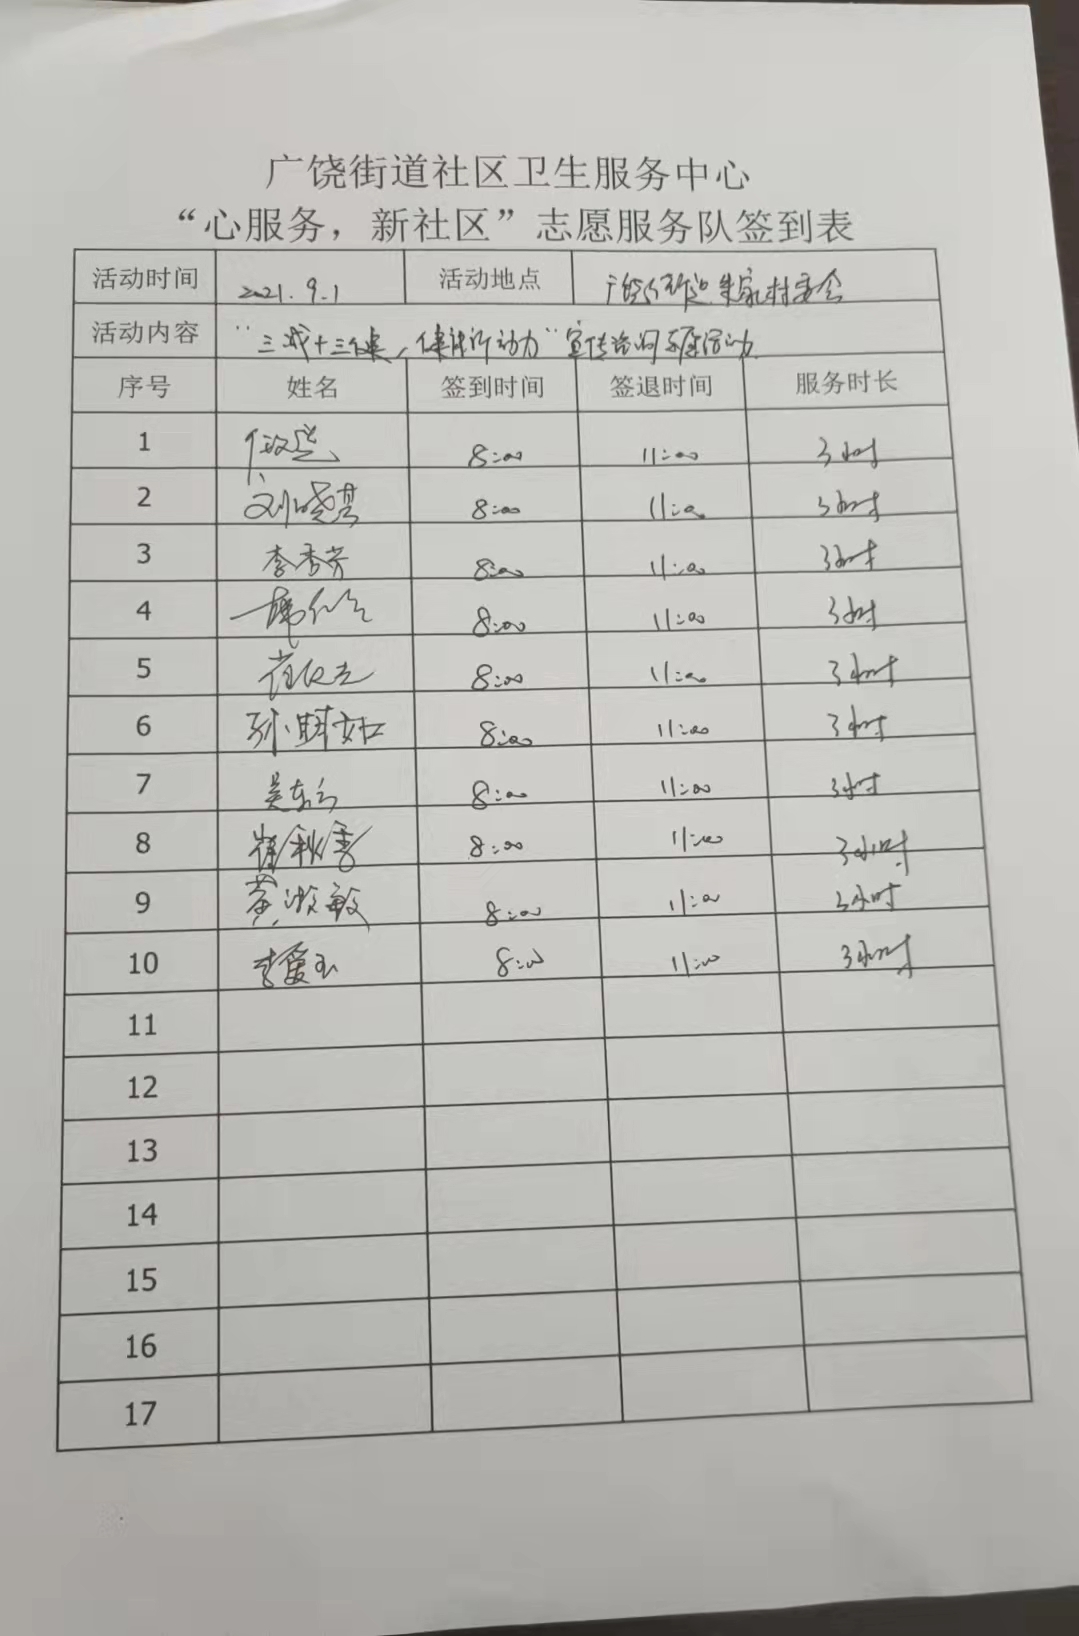 广饶街道社区卫生服务中心
“心服务，新社区”志愿服务队签到表
活动时间 2021.9.1 活动地点 广饶街道朱家村委会
活动内容 “三减十三健，健康行动力”宣传咨询义诊活动
序号 姓名 签到时间 签退时间 服务时长
1 8:00 11:00 3小时
2 刘晓燕 8:00 11:00 3小时
3 李秀芳 8:00 11:00 3小时
4 8:00 11:00 3小时
5 8:00 11:00 3小时
6 8:00 11:00 3小时
7 吴东云 8:00 11:00 3小时
8 崔秋香 8:00 11:00 3小时
9 黄淑敏 8:00 11:00 3小时
10 李爱玉 8:00 11:00 3小时
11
12
13
14
15
16
17